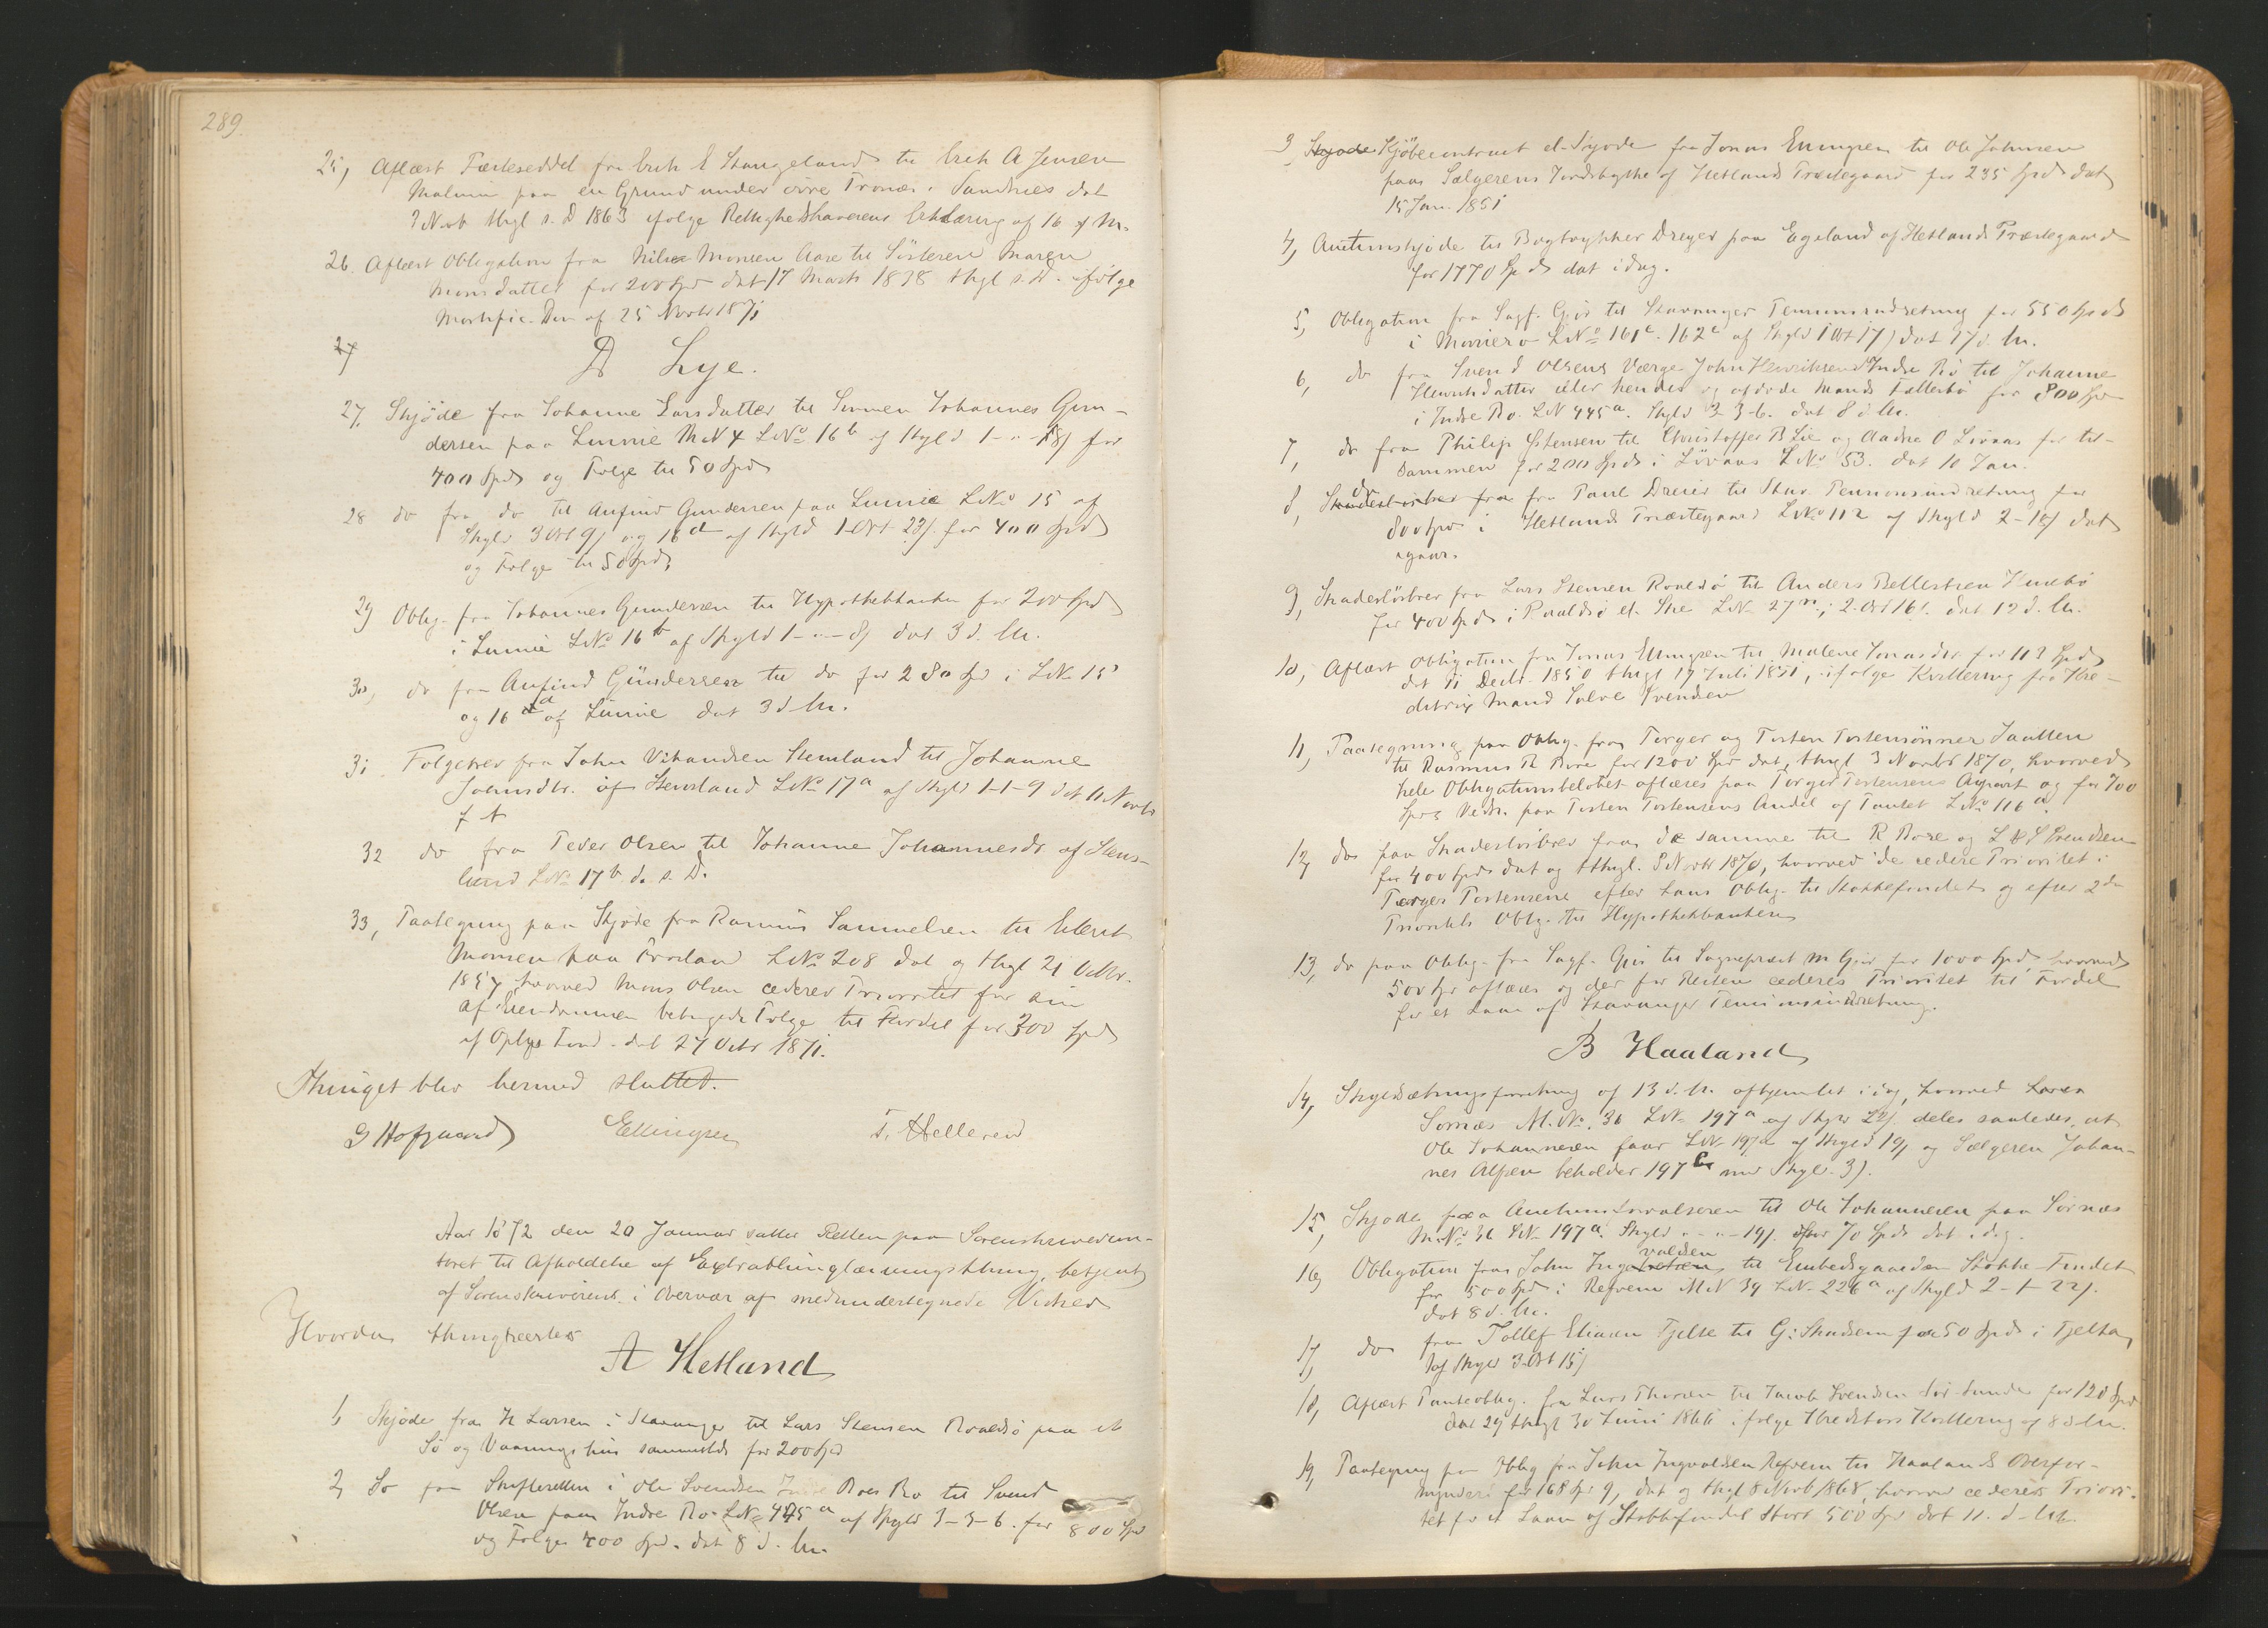 289.
25, Aflæst Fæsteseddel fra Erik E Stangeland til Erik A Jensen
Malmin paa en Grund under øvre Tronæs i Sandnes dat
3 Novb thgl s. D 1863 ifølge Rettighedshaverens Erklæring af 16 f M.
26. Aflæst Obligation fra Nils Monsen Aase til Søsteren Maren
Monsdatter for 200 Spd dat 17 Marts 1838 thgl s. D. ifølge
Mortific. Dom af 25 Novbr 1871
27
D Lye.
27. Skjøde fra Johanne Larsdatter til Sønnen Johannes Gun-
dersen paa Lunnie M N 4 L No 16 b af Skyld 1 - " - 8 / for
400 Spd og Folge til 50 Spd
28 do fra do til Anfind Gundersen paa Lunnie L No 15 af
Skyld 3 Ort 9 / og 16 d af Skyld 1 Ort 23 /. for 400 Spd
og Folge til 50 Spd,
29 Oblig. fra Johannes Gundersen til Hypothekbanken for 200 Spd
i Lunnie L No 16 b af Skyld 1 - " - 8 / dat 3 d. M.
30, do fra Anfind Gundersen til do for 280 Spd i L No 15
og 16 d af Lunnie dat 3 d M.
31. Folgebrev fra John Vitandsen Stensland til Johanne
Joensdtr. af Stensland L No 17 a af Skyld 1-1-9 dat 11 Novbr
f A
32 do fra Peder Olsen til Johanne Johannesdr af Stens-
land L No 17 b. d. s. D.
33, Paategning paa Skjøde fra Rasmus Samuelsen til Eilert
Monsen paa Frøiland L No 208 dat og thgl 21 Octbr.
1857, hvorved Mons Olsen cederer Prioritet for sin
af Eiendommen betingede Folge til Fordel for 300 Spd
af Oplys. Fond - dat 27 Octbr 1871.
Thinget blev hermed sluttet.
G Hofgaard Ellingsen T. Helleren
Aar 1872 den 20 Januar sattes Retten paa Sorenskrivercon-
toret til Afholdelse af Extrathinglæsningsthing, betjent
af Sorenskriveren i Overvær af medundertegnede Vidner
Hvorda thinglæstes
A Hetland
1, Skjøde fra H Larsen i Stavanger til Lars Stensen Roaldsø paa et
Sø og Vaanings hus sammesteds for 200 Spd
2, Do fra Skifteretten i Ole Svendsen Indre Boes Bo til Svend
Olsen paa Indre Bø L No 445 a af Skyld 3-3-6. for 800 Spd
og Folge 400 Spd. dat 8 d. M.
3, Skjøde Kjøbecontract el. Skjøde fra Jonas Ellingsen til Ole Johnsen
paa Sælgerens Jordstykke af Hetlands Præstegaard for 235 Spd dat
15 Jan. 1851
4, Auctionsskjøde til Bogtrykker Dreyer paa Egeland af Hetlands Præstegaard
for 1770 Spd dat idag.
5, Obligation fra Sagf. Gjør til Stavanger Pensionsindretning for 550 Spd
i Mariero L No 161 c. 162 c af Skyld 1 Ort 17 / dat 17 d. M.
6, do fra Svend Olsens Værge John Henriksen Indre Bø til Johanne
Henriksdatter eller hendes og afdøde Mands Fællesbo for 800 Spd
i Indre Bø. L N 445 a. Skyld 3-3-6. dat 8 d M.
7, do fra Philip Østensen til Christoffer B Lie og Aadne O Livaas for til-
sammen for 200 Spd i Livaas L No 53. dat 10 Jan.
8, Skadesløsbrev fra do fra Paul Dreier til Stav. Pensionsindretning for
800 Spd i Hetlands Præstegaard L No 112 af Skyld 2-10 / dat
igaar.
9, Skadesløsbrev fra Lars Stensen Roaldsø til Anders Pellestsen
for 400 Spd i Roaldsø el. L No 27; 2 Ort 16 /. dat 12 d. M.
10, Aflæst Obligation fra Jonas Ellingsen til Malene Jonasdr. for 113 Spd
dat 11 Decbr. 1850 thgl 17 Juli 1851, ifølge Kvittering fra Kre-
ditrix Mand Salve Svendsen
11, Paategning paa Oblig. fra Torger og Torsten Torstensønner Tautlen
til Rasmus R Rore for 1200 Spd dat, thgl 3 Novbr 1870, hvorved
hele Obligationsbeløbet aflæses paa Torger Torstensens Anpart og for 700
Spds Vedk. paa Torsten Torstensens Andel af Tautlet L No 116 a
12, do paa Skadesløsbrev fra de samme til R Rore og L & S Svendsen
for 400 Spd dat og thgl. 3 Novbr 1870, hvorved de cedere Prioritet i
Torger Torstensens efter hans Oblig. til Støttefondet og efter 2den
Prioritets Oblg. til Hypothekbanken
13, do paa Oblig. fra Sagf. Gjør til Sognepræst M Gjør for 1000 Spd, hvorved
500 Spd aflæses og der for Resten cederes Prioritet til Fordel
for et Laan af Stavanger Pensionsindretning.
B Haaland
14, Skyldsætningsforretning af 13 d. M. afhjemlet i dag, hvorved Løren
Sørnæs M. No. 36 L No 197 a af Skyld 22 / deles saaledes, at
Ole Johannesen faar L No 197 a af Skyld 19 / og Sælgeren Johan-
nes Alfsen beholder 197 b med Skyld. 3 /.
15, Skjøde fra Auctionsforvalteren til Ole Johannesen paa Sørnæs
M. No 36 L No 197 a. Skyld " - " - 19 /. for 70 Spd dat i dag.
16, Obligation fra John Ingevaldsen til Embedsgaardenes Støtte-Fondet
for 500 Spd i Refvem M N 39 L No 226 a af Skyld 2-1-22 /.
dat 8 d. M.
17, do fra Tollef Eliasen Tjelte til G: Skadsem for 50 Spd i Tjelta
af Skyld 3 Ort 15 /
18, Aflæst Panteoblig. fra Lars Thorsen til Jacob Svendsen Sør-Sunde for 120 Spd
dat 29 thgl 30 Juni 1866 ifølge Kreditors Kvittering af 8 d M.
19, Paategning paa Oblig fra John Ingvaldsen Refvem til Haalands Overfor-
mynderi for 168 Spd 9, dat og thgl 8 Novb 1868, hvorved cederes Priori-
tet for et Laan af Støttefondet stort 500 Spd dat 11. d. M.